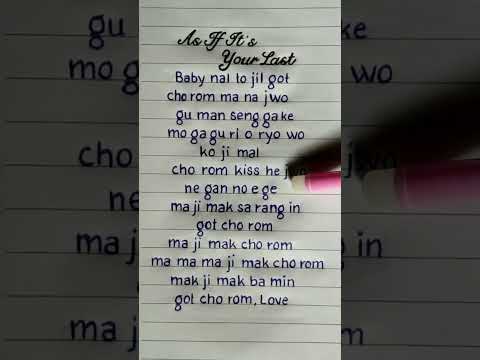 As If It's
Your Last
Baby nal lo jil got
cho rom ma na jwo
gu man seng ga ke
mo ga gu ri o ryo wo
ko ji mal
cho rom kiss he jwo
ne gan no e ge
ma ji mak sa rang in
got cho rom
ma ji mak cho rom
ma ma ma ji mak cho rom
mak ji mak ba min
got cho rom, Love